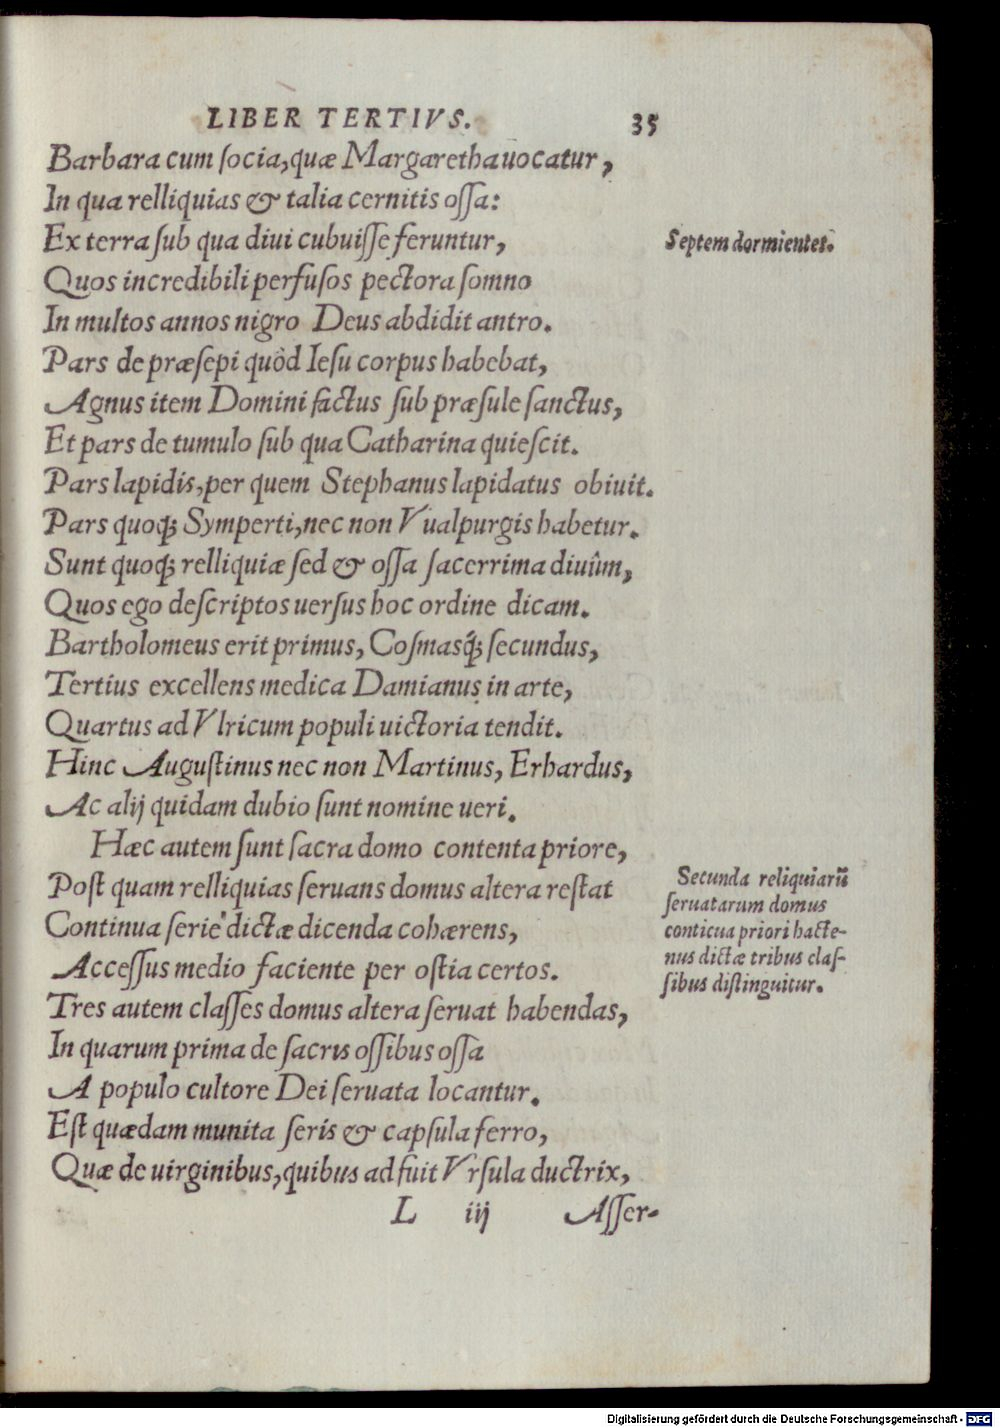 LIBER TERTIVS. 35
Barbara cum socia, quæ Margaretha uocatur,
In qua relliquias & talia cernitis ossa:
Ex terra sub qua diui cubuisse feruntur,
Septem dormientes.
Quos incredibili perfusos pectora somno
In multos annos nigro Deus abdidit antro.
Pars de præsepi quòd Iesu corpus habebat,
Agnus item Domini factus sub præsule sanctus,
Et pars de tumulo sub qua Catharina quiescit.
Pars lapidis, per quem Stephanus lapidatus obiuit.
Pars quoq; Symperti, nec non Vualpurgis habetur.
Sunt quoq; relliquiæ sed & ossa sacerrima diuûm,
Quos ego descriptos uersus hoc ordine dicam.
Bartholomeus erit primus, Cosmasq́; secundus,
Tertius excellens medica Damianus in arte,
Quartus ad Vlricum populi uictoria tendit.
Hinc Augustinus nec non Martinus, Erhardus,
Ac alij quidam dubio sunt nomine ueri.
Hæc autem sunt sacra domo contenta priore,
Post quam relliquias seruans domus altera restat
Continua serie dictæ dicenda cohærens,
Accessus medio faciente per ostia certos.
Secunda reliquiarũ
seruatarum domus
conticua priori hacte-
nus dictæ tribus clas-
sibus distinguitur.
Tres autem classes domus altera seruat habendas,
In quarum prima de sacris ossibus ossa
A populo cultore Dei seruata locantur.
Est quædam munita seris & capsula ferro,
Quæ de uirginibus, quibus adfuit Vrsula ductrix,
L iij Asser-
Digitalisierung gefördert durch die Deutsche Forschungsgemeinschaft - DFG